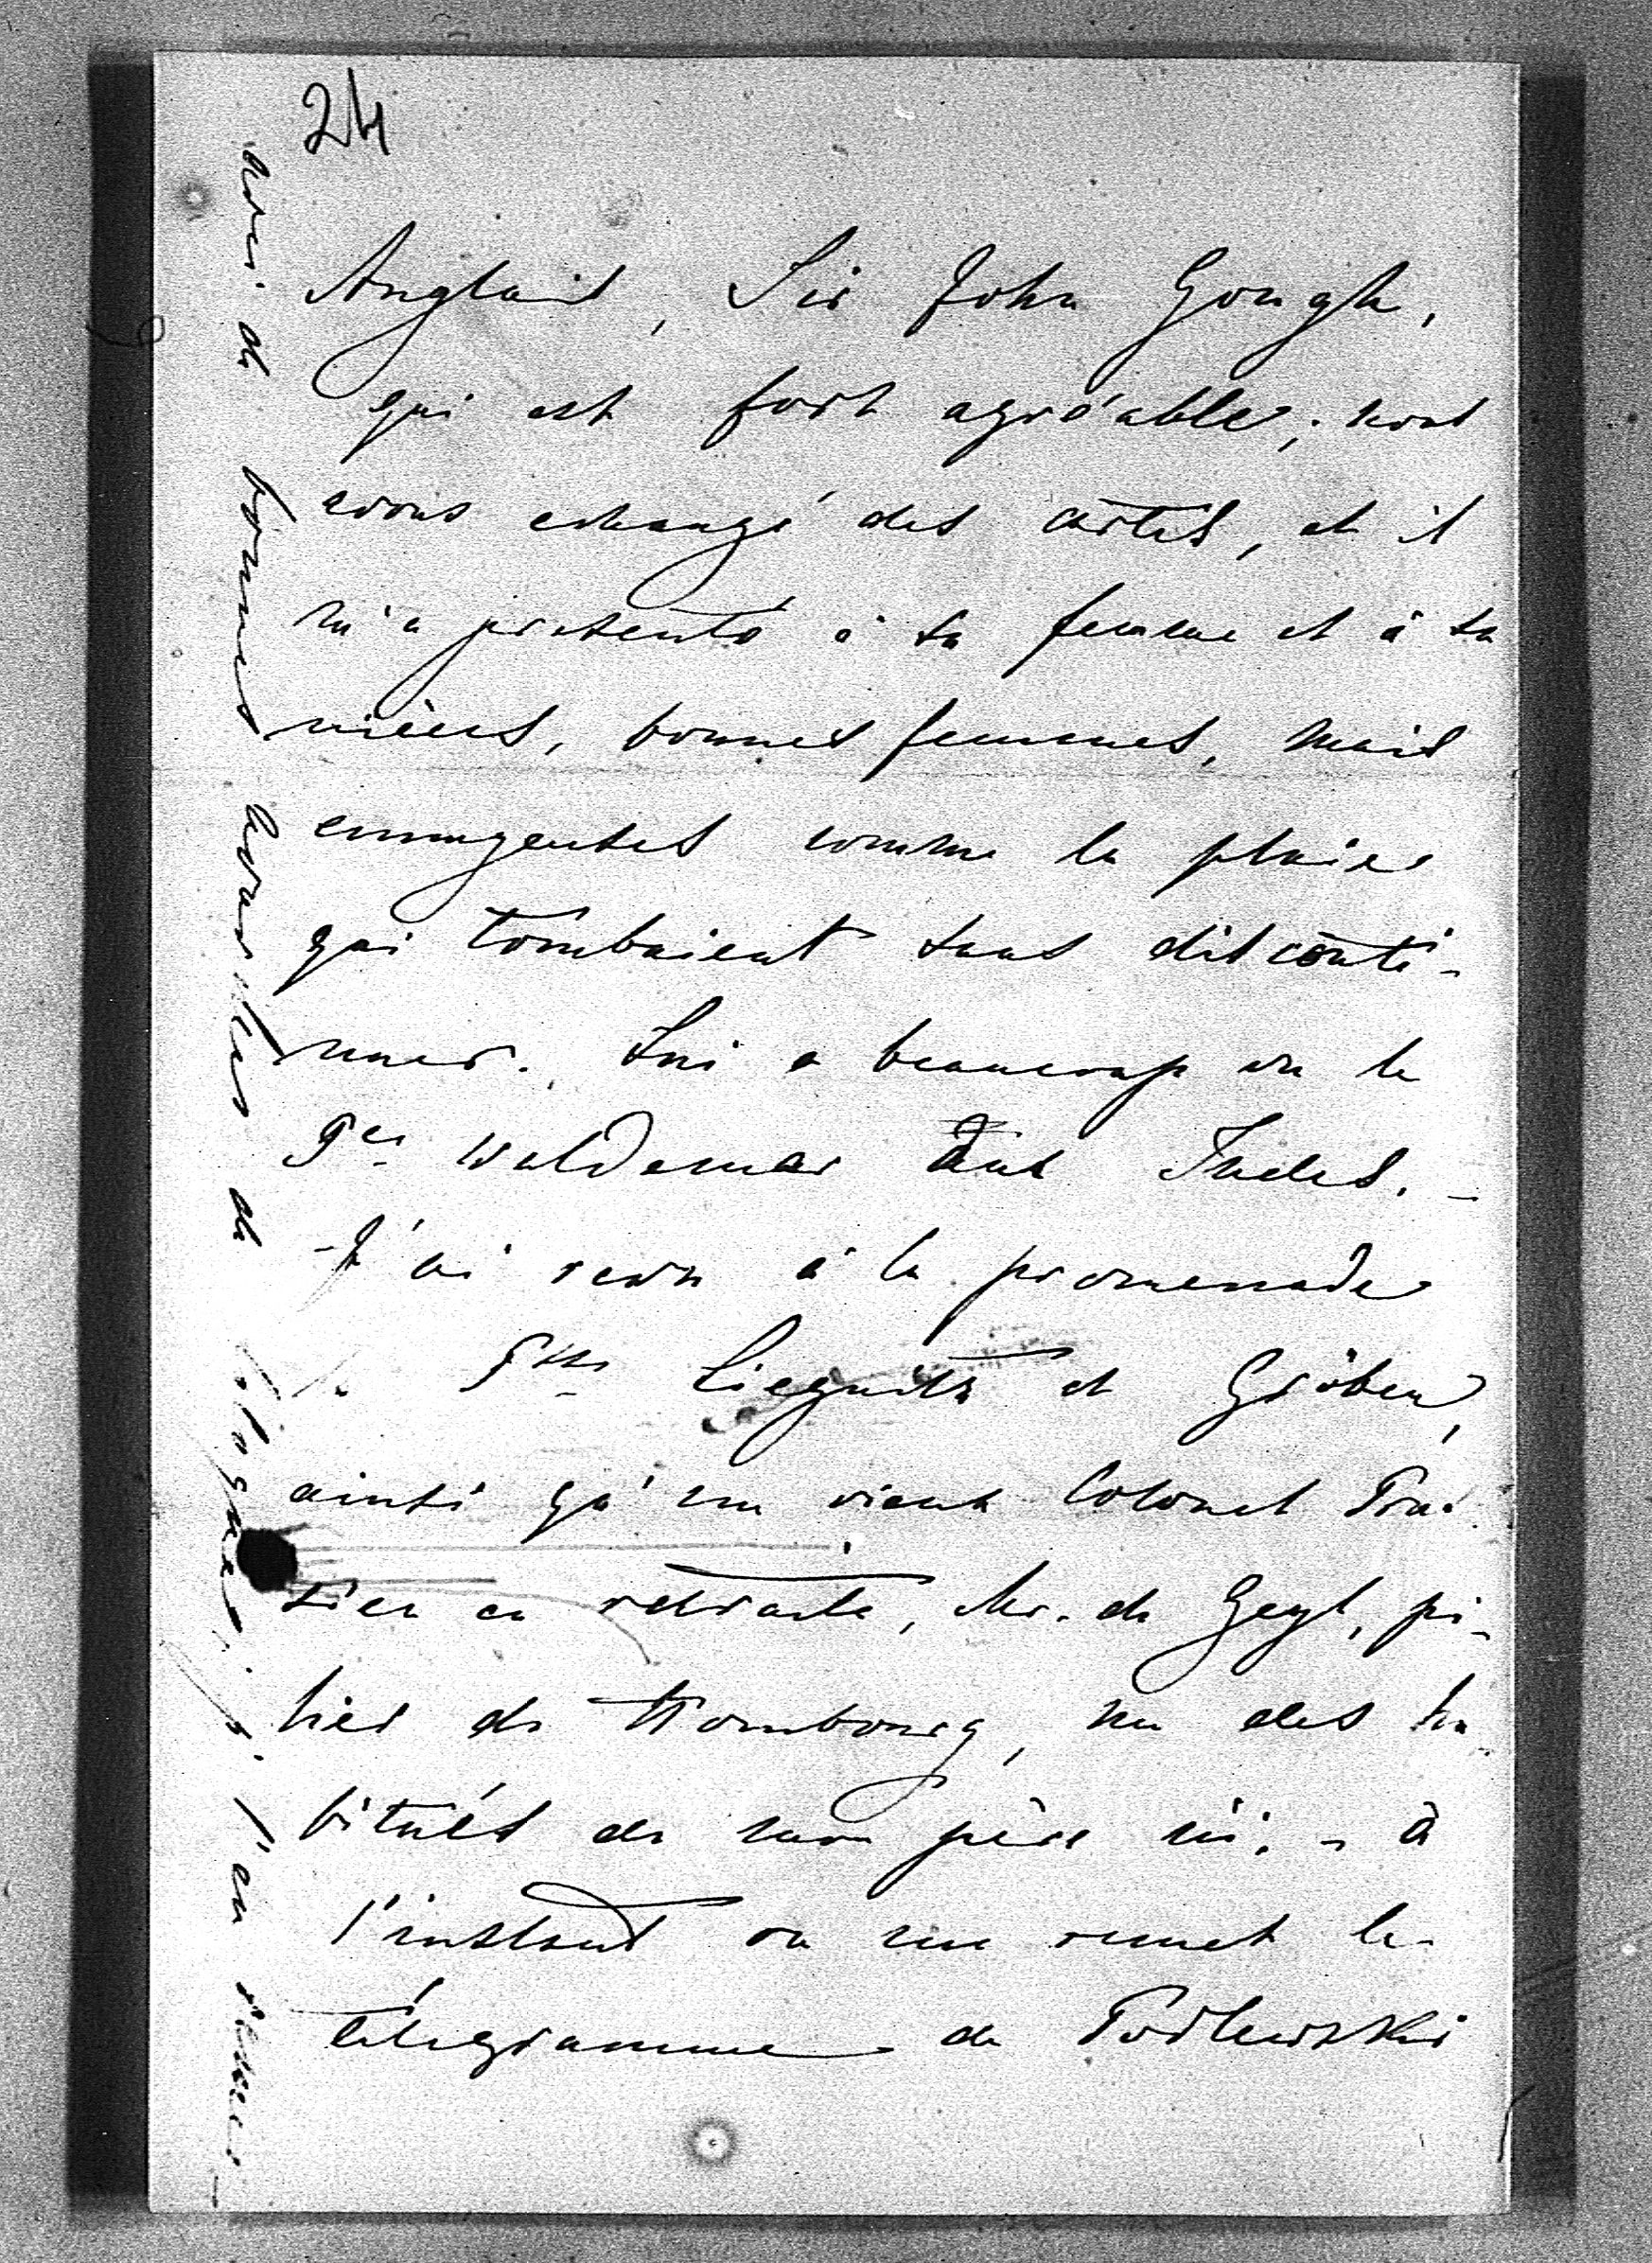 24
Anglais, Sir John Gough,
qui est fort agréable; nous
avons echangé des cartes, et il
m'a presenté à sa femme et à sa
nièces, bonnes femmes, mais
ennuyeuses comme la pluie
qui tombaient sans disconti-
nuer. Lui a beaucoup vu le
Pce Waldemar aux Indes. –
– J'ai revu à la promenade
la Psse Liegnitz et Gröben,
ainsi qu'un vieux Colonel Prus-
sien en retraite, Mr. de Geyl, pi-
lier de Hombourg, un des ha-
bitués de mon père ici. – À
l'instant on me remet le
télégramme de Podlewski
avec de bonnes nouvelles de
j'en